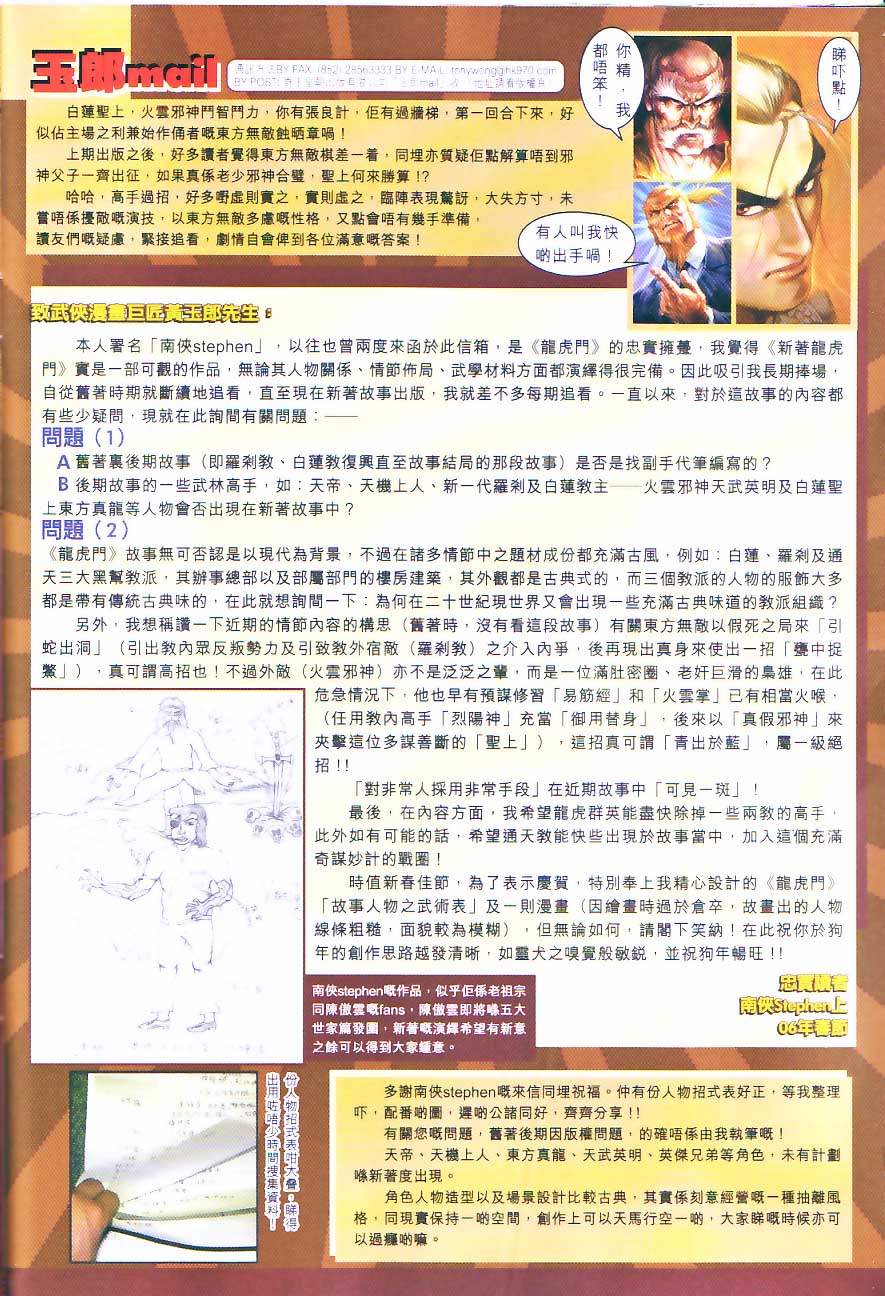 玉郎mail
通訊方法BY FAX: (852) 28563333 BY E-MAIL: tonywong@hk970.com
你精，我
都唔笨！
睇吓點！
有人叫我快
啲出手喎！
白蓮聖上，火雲邪神鬥智鬥力，你有張良計，佢有過牆梯，第一回合下來，好
似佔主場之利兼始作俑者嘅東方無敵蝕晒章喎！
上期出版之後，好多讀者覺得東方無敵棋差一着，同埋亦質疑佢點解算唔到邪
神父子一齊出征，如果真係老少邪神合璧，聖上何來勝算！？
哈哈，高手過招，好多嘢虛則實之，實則虛之，臨陣表現驚訝，大失方寸，未
嘗唔係擾敵嘅演技，以東方無敵多慮嘅性格，又點會唔有幾手準備，
讀友們嘅疑慮，緊接追看，劇情自會俾到各位滿意嘅答案！
致武俠漫畫巨匠黃玉郎先生：
本人署名「南俠stephen」，以往也曾兩度來函於此信箱，是《龍虎門》的忠實擁躉，我覺得《新著龍虎
門》實是一部可觀的作品，無論其人物關係、情節佈局、武學材料方面都演繹得很完備。因此吸引我長期捧場，
自從舊著時期就斷續地追看，直至現在新著故事出版，我就差不多每期追看。一直以來，對於這故事的內容都
有些少疑問，現就在此詢間有關問題：——
問題（1）
A 舊著裏後期故事（即羅剎教、白蓮教復興直至故事結局的那段故事）是否是找副手代筆編寫的？
B 後期故事的一些武林高手，如：天帝、天機上人、新一代羅剎及白蓮教主——火雲邪神天武英明及白蓮聖
上東方真龍等人物會否出現在新著故事中？
問題（2）
《龍虎門》故事無可否認是以現代為背景，不過在諸多情節中之題材成份都充滿古風，例如：白蓮、羅剎及通
天三大黑幫教派，其辦事總部以及部屬部門的樓房建築，其外觀都是古典式的，而三個教派的人物的服飾大多
都是帶有傳統古典味的，在此就想詢問一下：為何在二十世紀現世界又會出現一些充滿古典味道的教派組織？
另外，我想稱讚一下近期的情節內容的構思（舊著時，沒有看這段故事）有關東方無敵以假死之局來「引
蛇出洞」（引出教內眾反叛勢力及引致教外宿敵（羅剎教）之介入內爭，後再現出真身來使出一招「甕中捉
鱉」），真可謂高招也！不過外敵（火雲邪神）亦不是泛泛之輩，而是一位滿肚密圈、老奸巨滑的梟雄，在此
危急情況下，他也早有預謀修習「易筋經」和「火雲掌」已有相當火喉，
（任用教內高手「烈陽神」充當「御用替身」，後來以「真假邪神」來
夾擊這位多謀善斷的「聖上」），這招真可謂「青出於藍」，屬一級絕
招！！
「對非常人採用非常手段」在近期故事中「可見一斑」！
最後，在內容方面，我希望龍虎群英能盡快除掉一些兩教的高手，
此外如有可能的話，希望通天教能快些出現於故事當中，加入這個充滿
奇謀妙計的戰圈！
時值新春佳節，為了表示慶賀，特別奉上我精心設計的《龍虎門》
「故事人物之武術表」及一則漫畫（因繪畫時過於倉卒，故畫出的人物
線條粗糙，面貌較為模糊），但無論如何，請閣下笑納！在此祝你於狗
年的創作思路越發清晰，如靈犬之嗅覺般敏鋭，並祝狗年暢旺！！
忠實讀者
南俠Stephen上
06年春節
南俠stephen嘅作品，似乎佢係老祖宗
同陳傲雲嘅fans，陳傲雲即將喺五大
世家篇發圍，新著嘅演繹希望有新意
之餘可以得到大家鍾意。
份人物招式表咁大叠，睇得
出用咗唔少時間搜集資料！
多謝南俠stephen嘅來信同埋祝福。仲有份人物招式表好正，等我整理
吓，配番啲圖，遲啲公諸同好，齊齊分享！！
有關您嘅問題，舊著後期因版權問題，的確唔係由我執筆嘅！
天帝、天機上人、東方真龍、天武英明、英傑兄弟等角色，未有計劃
喺新著度出現。
角色人物造型以及場景設計比較古典，其實係刻意經營嘅一種抽離風
格，同現實保持一啲空間，創作上可以天馬行空一啲，大家睇嘅時候亦可
以過癮啲嘛。